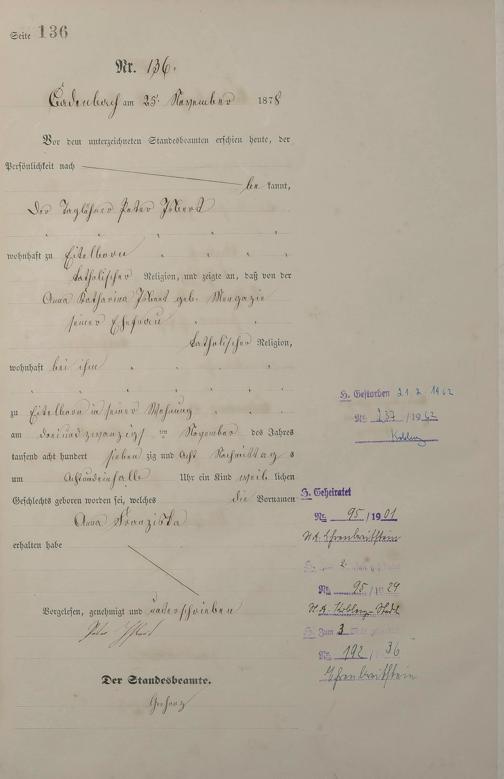 Seite 136
Nr. 136.
Cadenbach am 25. November 1878
Vor dem unterzeichneten Standesbeamten erschien heute, der
Persönlichkeit nach
be kannt,
Der Taglöhner Peter
wohnhaft zu Eitelborn
katholischer Religion, und zeigte an, daß von der
Anna Katharina geb.
seiner Ehefrau
katholischer Religion,
wohnhaft bei ihm
zu Eitelborn in seiner Wohnung
am dreiundzwanzigst en November des Jahres
tausend acht hundert sieben zig und acht Nachmittag s
um Uhr ein Kind weib lichen
Geschlechts geboren worden sei, welches die Vornamen
Anna Franziska
erhalten habe
Vorgelesen, genehmigt und unterschrieben
Peter
Der Standesbeamte.
H. Gestorben 1962
Nr. 237 / 1962
Koblenz
H. Geheiratet
Nr. 95 / 1901
Ehrenbreitstein
2.
Nr. 95 / 1929
St. A. Koblenz-Stadt
H. Zum 3
Nr. 192 / 36
Ehrenbreitstein